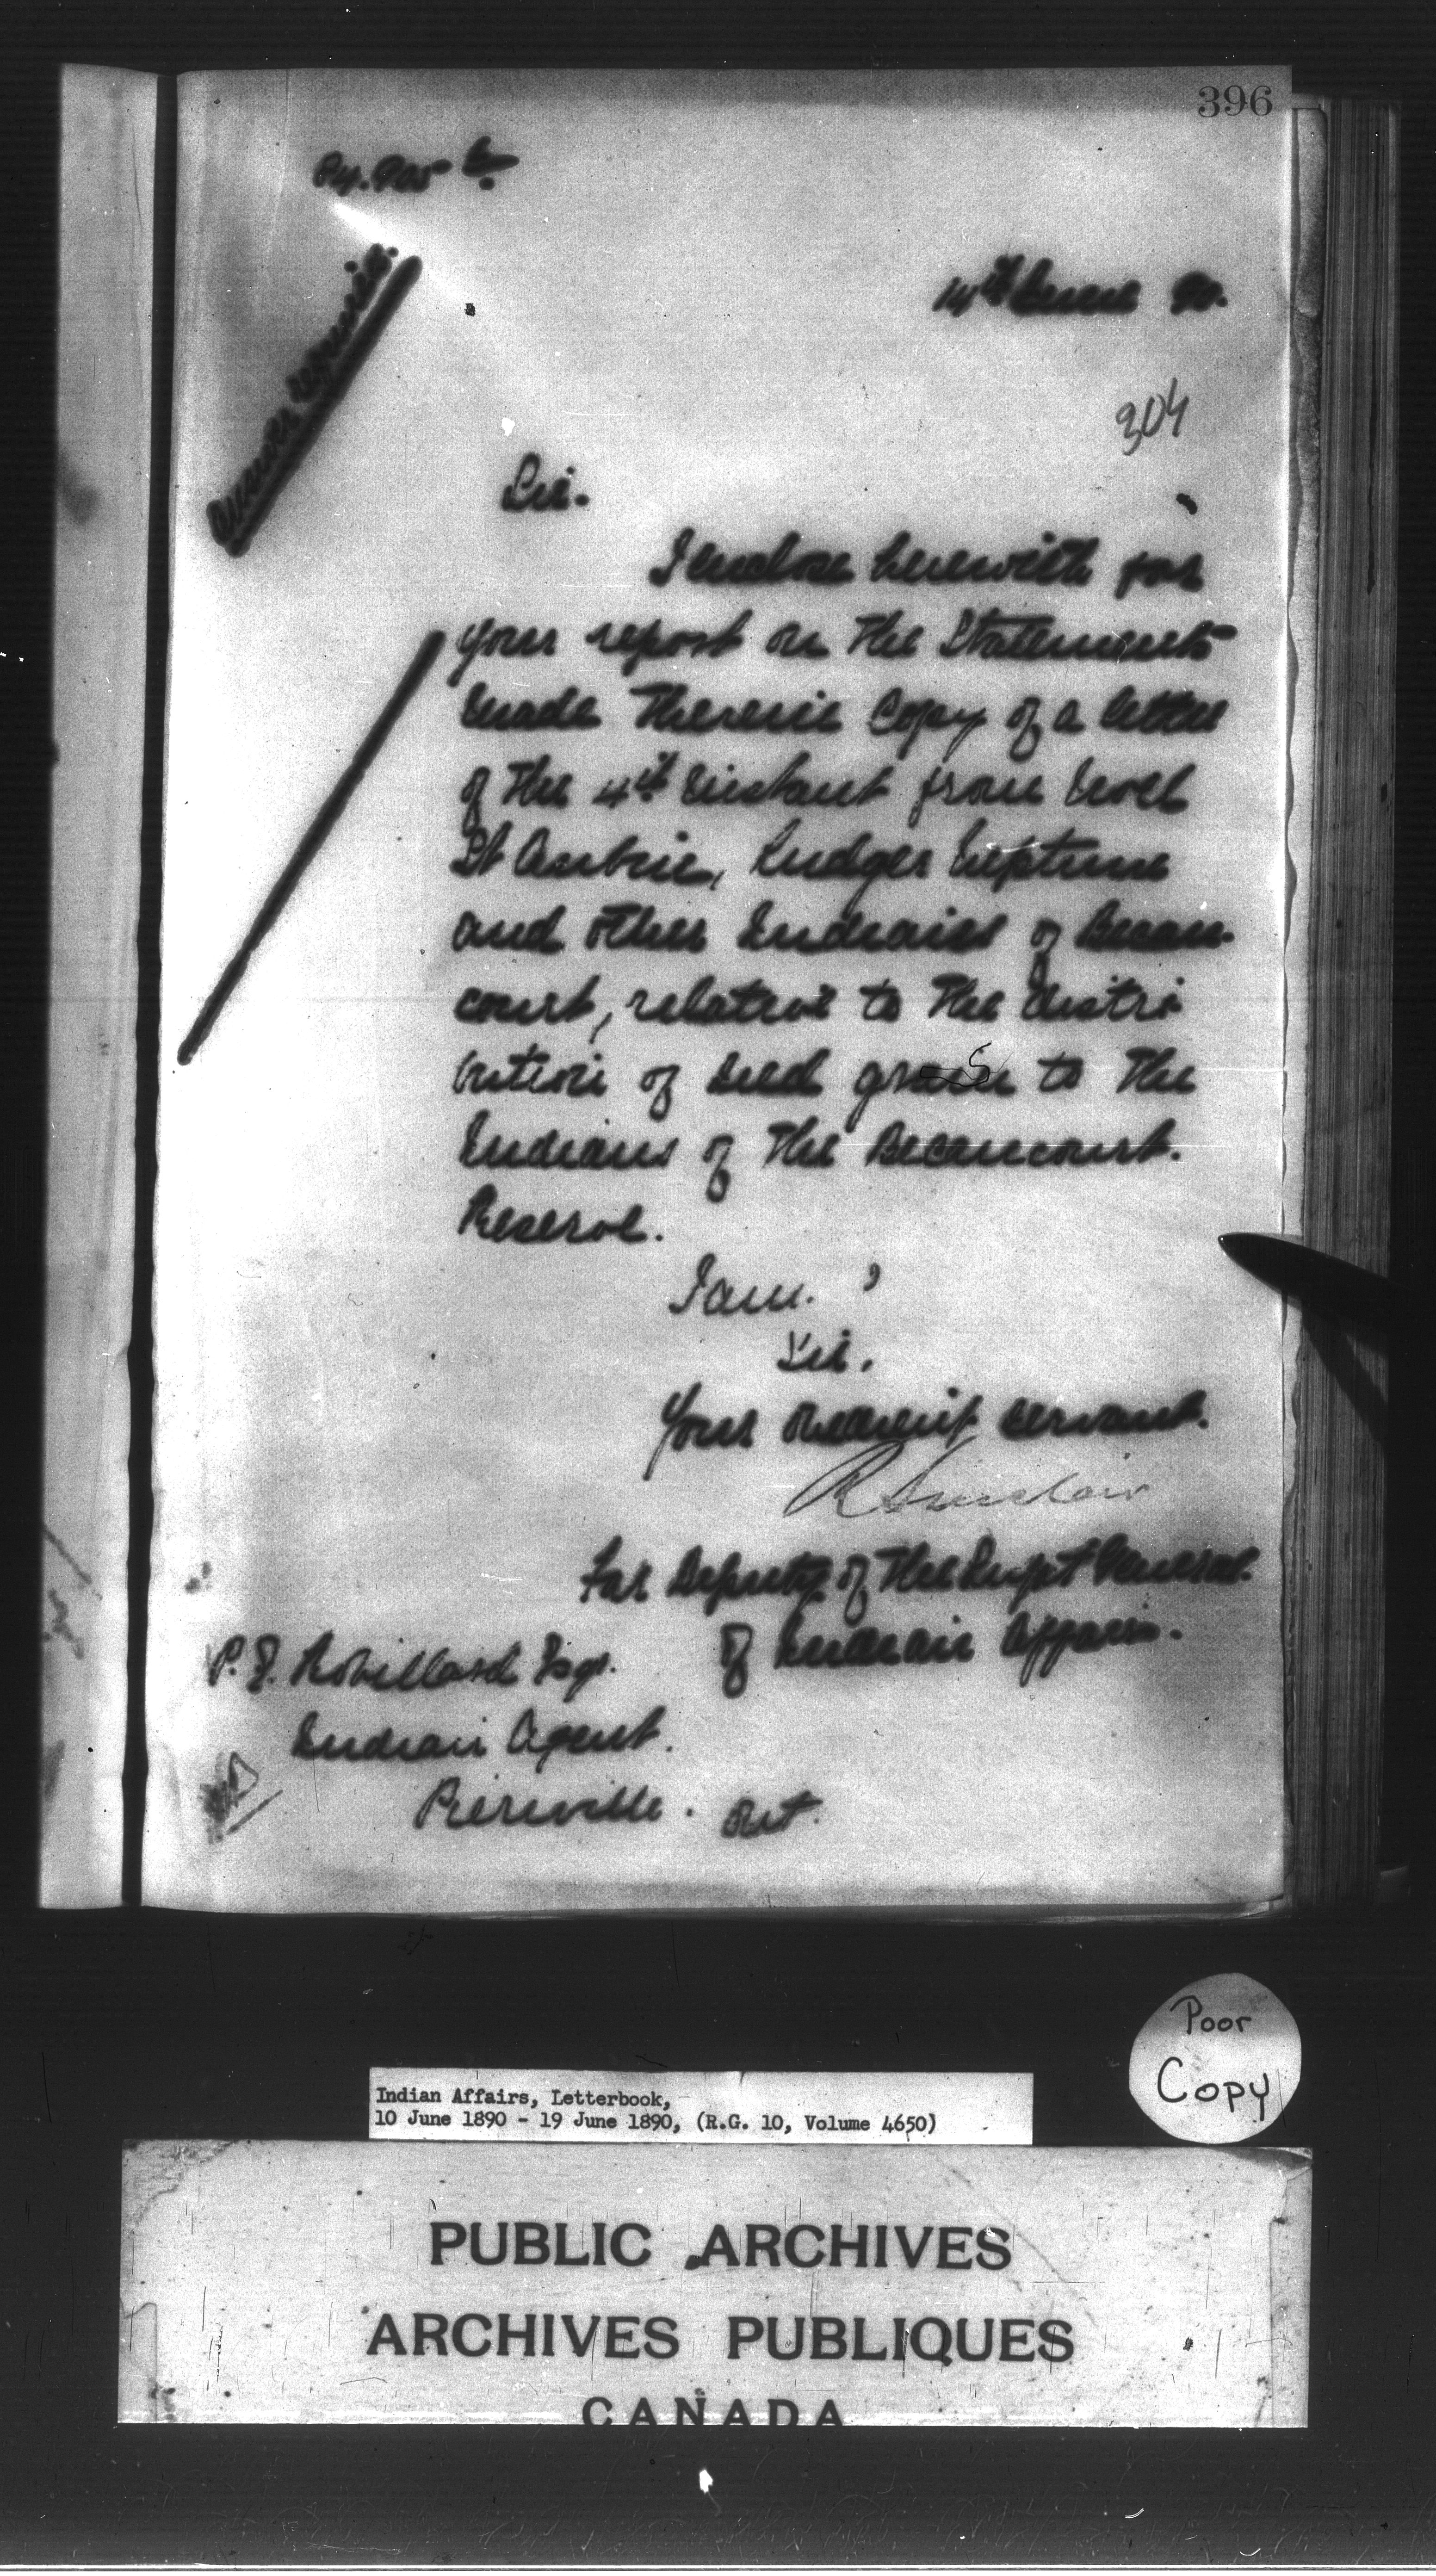 396
14th June 90.
304
Answer required.
Sir.
I enclose herewith for
your report on the Statements
made therein Copy of a letter
of the 4th instant from Noel
St Aubin, Ludger Neptune
and other Indians of Becan-
court, relative to the distri
bution of seed grain to the
Indians of the Becancourt.
Reserve.
I am.
Sir,
Your obedient servant.
R Sinclair
For Deputy of the Supt General.
of Indian Affairs.
P. E. Robillard Esqr.
Indian Agent.
Pierreville. Que.
Poor
Copy
Indian Affairs, Letterbook,
10 June 1890 - 19 June 1890, (R.G. 10, Volume 4650)
PUBLIC ARCHIVES
ARCHIVES PUBLIQUES
CANADA